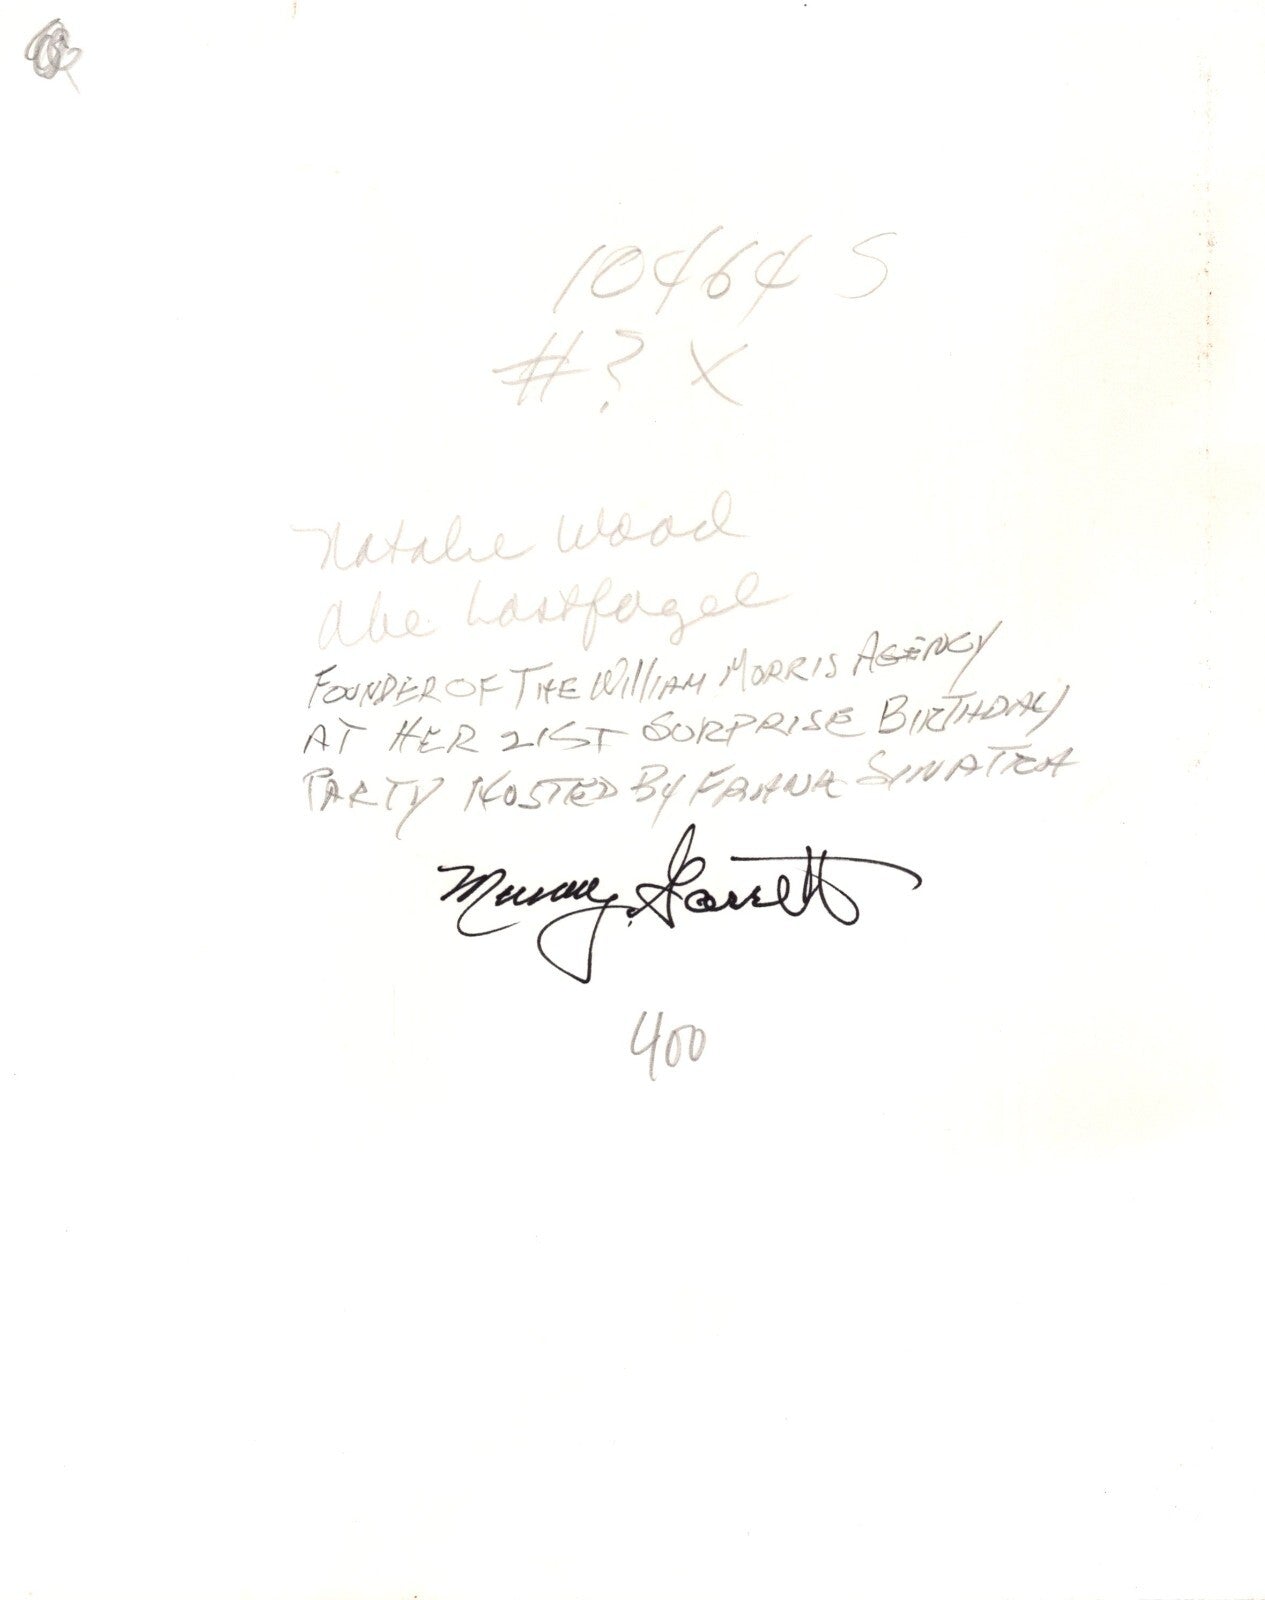 10464 S
#? X
Natalie Wood
Abe Lastfogel
FOUNDER OF THE WILLIAM MORRIS AGENCY
AT HER 21ST SURPRISE BIRTHDAY
PARTY HOSTED BY FRANK SINATRA
Murray Garrett
400